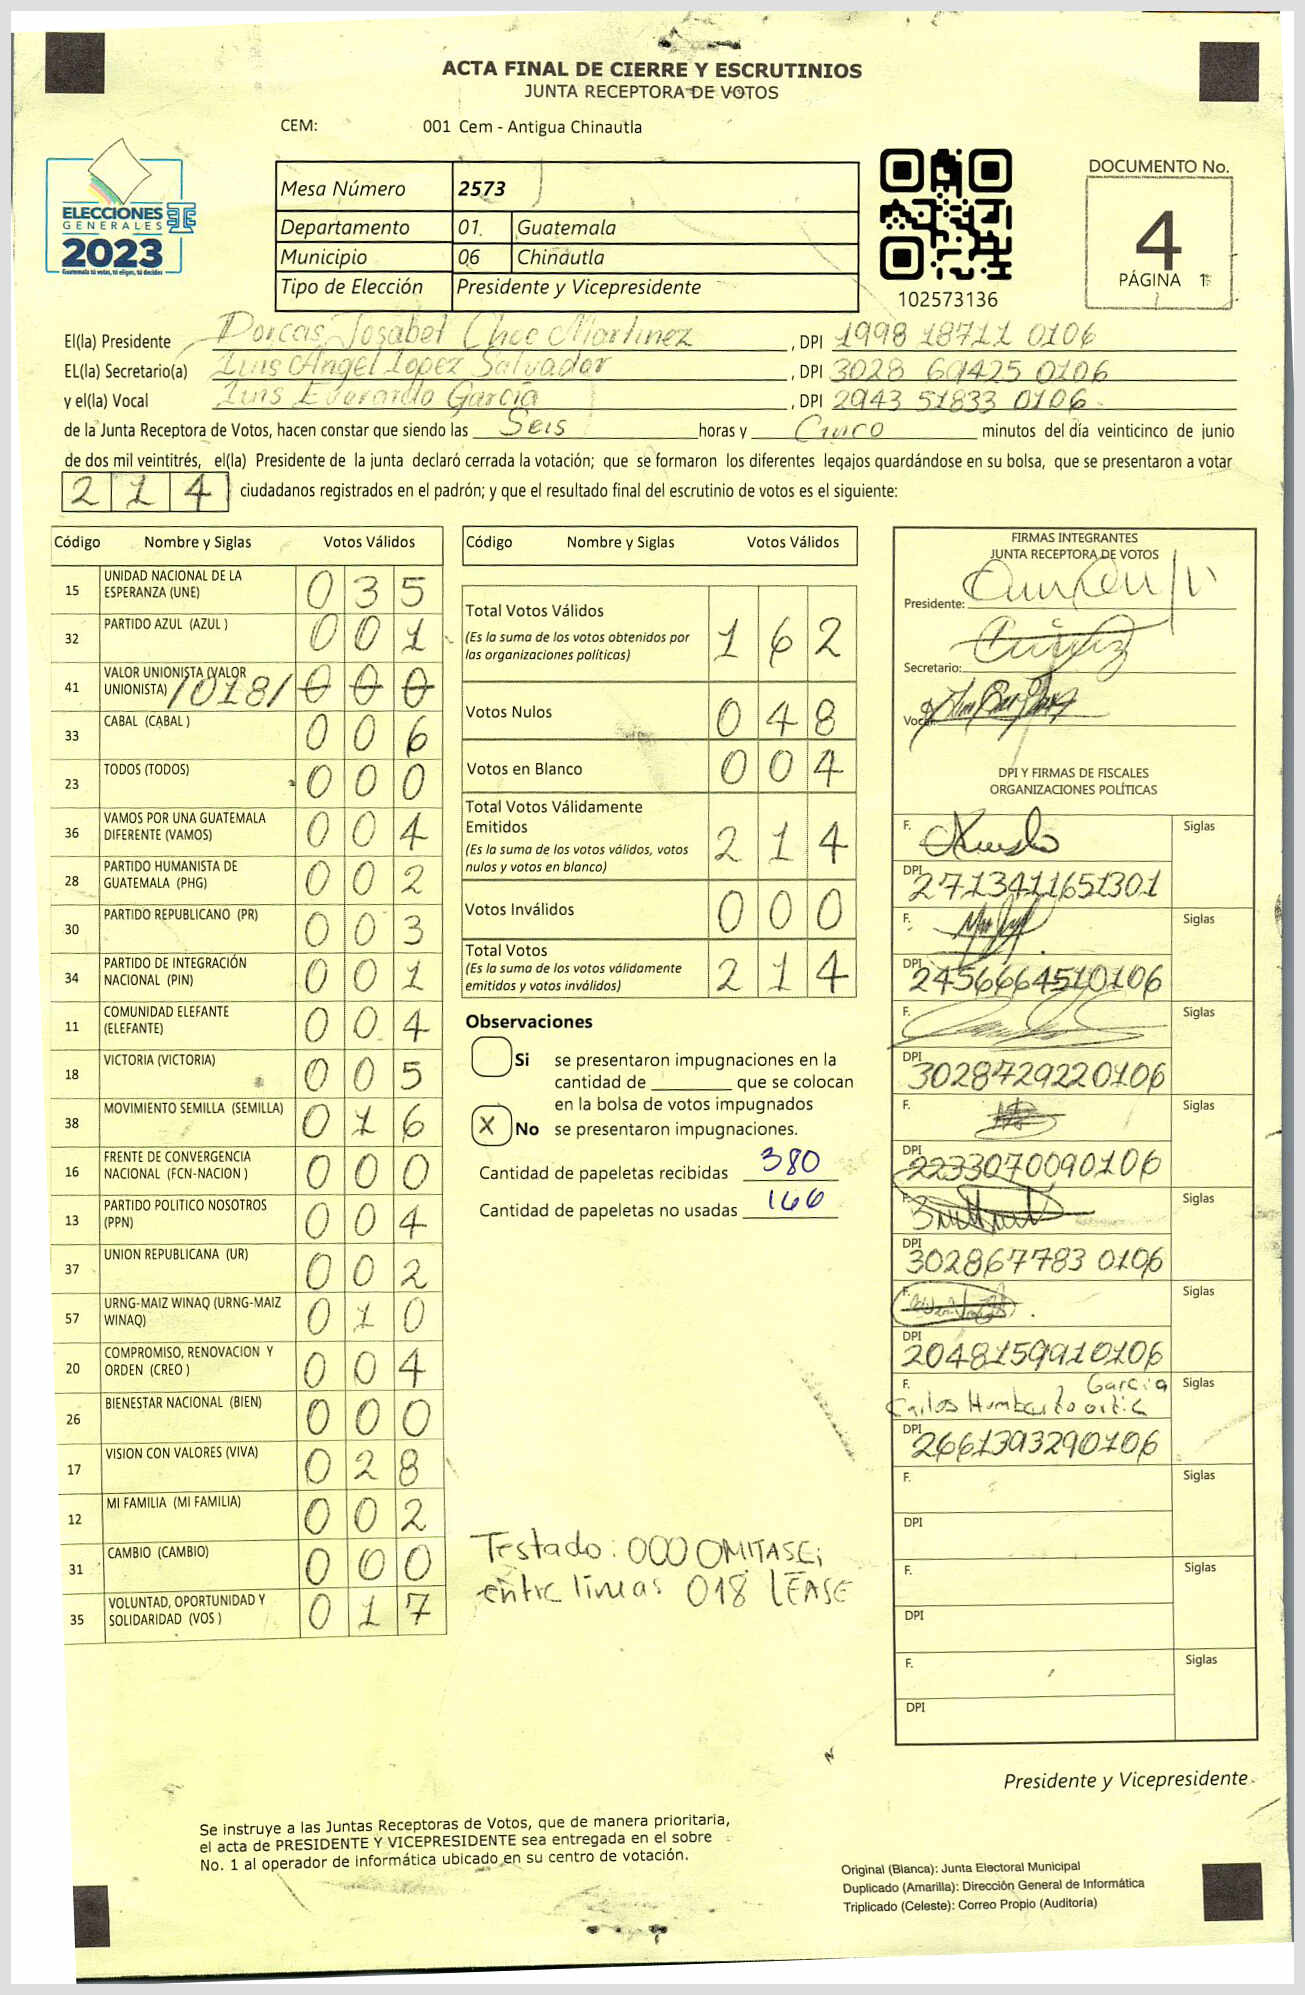 ACTA FINAL DE CIERRE Y ESCRUTINIOS
JUNTA RECEPTORA DE VOTOS
CEM: 001 Cem - Antigua Chinautla
ELECCIONES
GENERALES
2023
Guatemala tú votas, tú eliges, tú decides
Mesa Número 2573
Departamento 01 Guatemala
Municipio 06 Chinautla
Tipo de Elección Presidente y Vicepresidente
102573136
DOCUMENTO No.
4
PÁGINA 1
El(la) Presidente Dorcas Josabel Choc Martinez , DPI 1998 18711 0106
EL(la) Secretario(a) Luis Angel Lopez Salvador , DPI 3028 69425 0106
y el(la) Vocal Luis Everardo García , DPI 2943 51833 0106
de la Junta Receptora de Votos, hacen constar que siendo las Seis horas y Cinco minutos del día veinticinco de junio
de dos mil veintitrés, el(la) Presidente de la junta declaró cerrada la votación; que se formaron los diferentes legajos guardándose en su bolsa, que se presentaron a votar
214 ciudadanos registrados en el padrón; y que el resultado final del escrutinio de votos es el siguiente:
Código Nombre y Siglas Votos Válidos
15 UNIDAD NACIONAL DE LA ESPERANZA (UNE) 035
32 PARTIDO AZUL (AZUL ) 001
41 VALOR UNIONISTA (VALOR UNIONISTA) /018/ 000
33 CABAL (CABAL ) 006
23 TODOS (TODOS) 000
36 VAMOS POR UNA GUATEMALA DIFERENTE (VAMOS) 004
28 PARTIDO HUMANISTA DE GUATEMALA (PHG) 002
30 PARTIDO REPUBLICANO (PR) 003
34 PARTIDO DE INTEGRACIÓN NACIONAL (PIN) 001
11 COMUNIDAD ELEFANTE (ELEFANTE) 004
18 VICTORIA (VICTORIA) 005
38 MOVIMIENTO SEMILLA (SEMILLA) 016
16 FRENTE DE CONVERGENCIA NACIONAL (FCN-NACION ) 000
13 PARTIDO POLITICO NOSOTROS (PPN) 004
37 UNION REPUBLICANA (UR) 002
57 URNG-MAIZ WINAQ (URNG-MAIZ WINAQ) 010
20 COMPROMISO, RENOVACION Y ORDEN (CREO ) 004
26 BIENESTAR NACIONAL (BIEN) 000
17 VISION CON VALORES (VIVA) 028
12 MI FAMILIA (MI FAMILIA) 002
31 CAMBIO (CAMBIO) 000
35 VOLUNTAD, OPORTUNIDAD Y SOLIDARIDAD (VOS ) 017
Código Nombre y Siglas Votos Válidos
Total Votos Válidos 162
(Es la suma de los votos obtenidos por
las organizaciones políticas)
Votos Nulos 048
Votos en Blanco 004
Total Votos Válidamente
Emitidos 214
(Es la suma de los votos válidos, votos
nulos y votos en blanco)
Votos Inválidos 000
Total Votos 214
(Es la suma de los votos válidamente
emitidos y votos inválidos)
Observaciones
Si se presentaron impugnaciones en la
cantidad de ________ que se colocan
en la bolsa de votos impugnados
X No se presentaron impugnaciones.
Cantidad de papeletas recibidas 380
Cantidad de papeletas no usadas 166
Testado: 000 OMITASE;
entre lineas 018 LEASE
FIRMAS INTEGRANTES
JUNTA RECEPTORA DE VOTOS
Presidente:
Secretario:
Vocal:
DPI Y FIRMAS DE FISCALES
ORGANIZACIONES POLÍTICAS
F. Siglas
DPI 2713411651301
F. Siglas
DPI 2456664510106
F. Siglas
DPI 3028729220106
F. Siglas
DPI 2233070090106
F. Siglas
DPI 302867783 0106
F. Siglas
DPI 2048159910106
F. Carlos Humberto Ortiz Garcia Siglas
DPI 2661393290106
F. Siglas
DPI
F. Siglas
DPI
F. Siglas
DPI
Presidente y Vicepresidente
Se instruye a las Juntas Receptoras de Votos, que de manera prioritaria,
el acta de PRESIDENTE Y VICEPRESIDENTE sea entregada en el sobre
No. 1 al operador de informática ubicado en su centro de votación.
Original (Blanca): Junta Electoral Municipal
Duplicado (Amarilla): Dirección General de Informática
Triplicado (Celeste): Correo Propio (Auditoría)